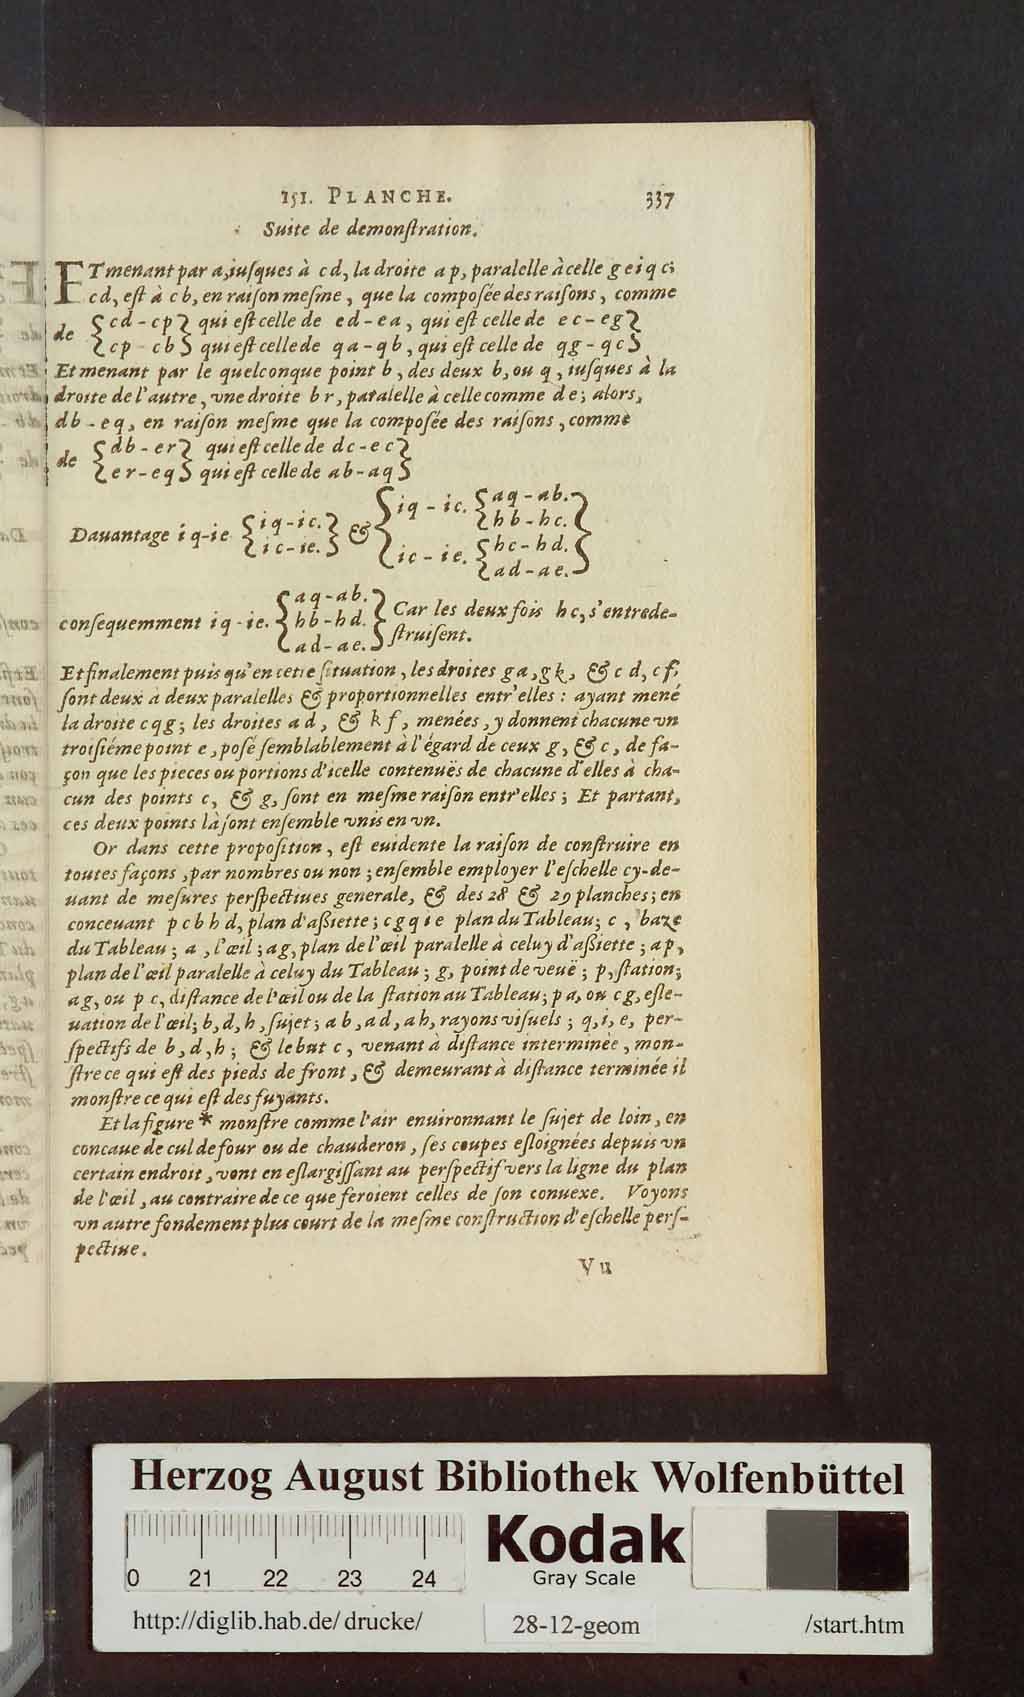 151. PLANCHE. 337
Suite de demonſtration.
ET menant par a, iuſques à cd, la droite ap, paralelle à celle geiqc;
cd, eſt à cb, en raiſon meſme, que la compoſée des raiſons, comme
de { cd - cp } qui eſt celle de ed - ea, qui eſt celle de ec - eg }
{ cp - cb } qui eſt celle de qa - qb, qui eſt celle de qg - qc }
Et menant par le quelconque point b, des deux b, ou q, iuſques à la
droite de l'autre, vne droite br, paralelle à celle comme de; alors,
db - eq, en raiſon meſme que la compoſée des raiſons, comme
de { db - er } qui eſt celle de dc - ec }
{ er - eq } qui eſt celle de ab - aq }
Dauantage iq-ie { iq-ic. } & { iq - ic. { aq - ab. }
{ hb - hc. }
{ ic-ie. } { ic - ie. { hc - hd. }
{ ad - ae. }
conſequemment iq-ie. { aq-ab. } Car les deux fois hc, s'entrede-
{ hb-hd. } ſtruiſent.
{ ad-ae. }
Et finalement puis qu'en cette ſituation, les droites ga, gk, & cd, cf,
ſont deux à deux paralelles & proportionnelles entr'elles : ayant mené
la droite cqg; les droites ad, & kf, menées, y donnent chacune vn
troiſiéme point e, poſé ſemblablement à l'égard de ceux g, & c, de fa-
çon que les pieces ou portions d'icelle contenuës de chacune d'elles à cha-
cun des points c, & g, ſont en meſme raiſon entr'elles ; Et partant,
ces deux points là ſont enſemble vnis en vn.
Or dans cette propoſition, eſt euidente la raiſon de conſtruire en
toutes façons, par nombres ou non ; enſemble employer l'eſchelle cy-de-
uant de meſures perſpectiues generale, & des 28 & 29 planches; en
conceuant pcbhd, plan d'aßiette; cgqie plan du Tableau; c, baze
du Tableau; a, l'œil; ag, plan de l'œil paralelle à celuy d'aßiette ; ap,
plan de l'œil paralelle à celuy du Tableau ; g, point de veuë ; p, ſtation;
ag, ou pc, diſtance de l'œil ou de la ſtation au Tableau; pa, ou cg, eſle-
uation de l'œil; b, d, h, ſujet; ab, ad, ah, rayons viſuels ; q, i, e, per-
ſpectifs de b, d, h; & le but c, venant à diſtance interminée, mon-
ſtre ce qui eſt des pieds de front, & demeurant à diſtance terminée il
monſtre ce qui eſt des fuyants.
Et la figure * monſtre comme l'air enuironnant le ſujet de loin, en
concaue de cul de four ou de chauderon, ſes coupes eſloignées depuis vn
certain endroit, vont en eſlargiſſant au perſpectif vers la ligne du plan
de l'œil, au contraire de ce que feroient celles de ſon conuexe. Voyons
vn autre fondement plus court de la meſme conſtruction d'eſchelle perſ-
pectiue.
Vu
Herzog August Bibliothek Wolfenbüttel
0 21 22 23 24
Kodak
Gray Scale
http://diglib.hab.de/drucke/ 28-12-geom /start.htm